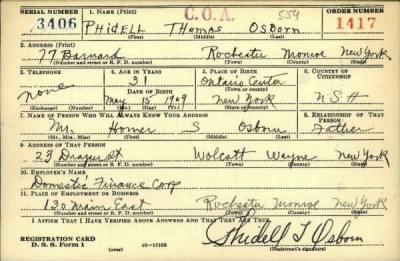 SERIAL NUMBER 1. NAME (Print) C.O.A. 554 ORDER NUMBER
3406 PHIDELL THOMAS OSBORN 1417
(First) (Middle) (Last)
2. ADDRESS (Print)
77 Barnard Rochester Monroe New York
(Number and street or R. F. D. number) (Town) (County) (State)
3. TELEPHONE 4. AGE IN YEARS 5. PLACE OF BIRTH 6. COUNTRY OF CITIZENSHIP
none 31 Ontario Center
DATE OF BIRTH (Town or county)
May 15 1909 New York U S A
(Exchange) (Number) (Mo.) (Day) (Yr.) (State or country)
7. NAME OF PERSON WHO WILL ALWAYS KNOW YOUR ADDRESS 8. RELATIONSHIP OF THAT PERSON
Mr. Homer S Osborn Father
(Mr., Mrs., Miss) (First) (Middle) (Last)
9. ADDRESS OF THAT PERSON
23 Draper St Wolcott Wayne New York
(Number and street or R. F. D. number) (Town) (County) (State)
10. EMPLOYER'S NAME
Domestic Finance Corp
11. PLACE OF EMPLOYMENT OR BUSINESS
130 Main East Rochester Monroe New York
(Number and street or R. F. D. number) (Town) (County) (State)
I AFFIRM THAT I HAVE VERIFIED ABOVE ANSWERS AND THAT THEY ARE TRUE.
REGISTRATION CARD Phidell T Osborn
D. S. S. Form 1 (over) 16—17105 (Registrant's signature)